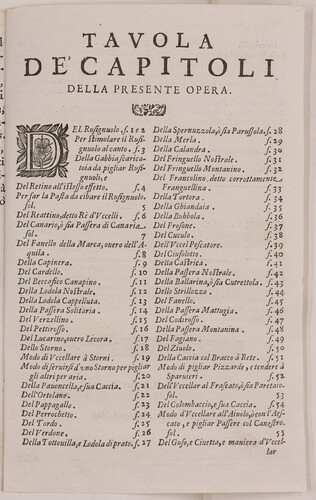 TAVOLA
DE' CAPITOLI
DELLA PRESENTE OPERA.
DEL Rusignuolo. f. 1 e 2
Per stimolare il Rusi-
gnuolo al canto. f. 3
Della Gabbia scarica-
toia da pigliar Rusi-
gnuoli; e
Del Retino all'istesso effetto. f. 4
Per far la Pasta da cibare il Rusignuolo.
fol. 5
Del Reattino, detto Rè d'Vccelli. f. 6
Del Canario, ò sia Passera di Canaria
fol. 7
Del Fanello della Marca, ouero dell'A-
quila. f. 8
Della Capinera. f. 9
Del Cardello. f. 10
Del Beccafico Canapino. f. 11
Della Lodola Nostrale. f. 12
Della Lodola Cappelluta. f. 13
Della Passera Solitaria. f. 14
Del Verzellino. f. 15
Del Pettirosso. f. 16
Del Lucarino, ouero Lecora. f. 17
Dello Storno. f. 18
Modo di Vccellare à Storni. f. 19
Modo di seruirsi d'vno Storno per pigliar
gli altri per aria. f. 20
Della Pauoncella, e sua Caccia. f. 21
Dell'Ortolano. f. 22
Del Pappagallo. f. 23
Del Perrochetto. f. 24
Del Tordo. f. 25
Del Verdone. f. 26
Della Tottouilla, e Lodola di prato. f. 27
Della Spernuzzola, ò sia Parussola. f. 28
Della Merla. f. 29
Della Calandra. f. 30
Del Fringuello Nostrale. f. 31
Del Fringuello Montanino. f. 32
Del Francolino, detto corrottamente
Franguellina. f. 33
Della Tortora. f. 34
Della Ghiandaia. f. 35
Della Bubbola. f. 36
Del Frosone. f. 37
Del Cuculo. f. 38
Dell'Vccel Pescatore. f. 39
Del Ciufolotto. f. 40
Della Castrica. f. 41
Della Passera Nostrale. f. 42
Della Ballarina, ò sia Cutrettola. f. 43
Dello Strillozzo. f. 44
Del Fanello. f. 45
Della Passera Mattugia. f. 46
Del Codirosso. f. 47
Della Passera Montanina. f. 48
Del Fagiano. f. 49
Del Ziuolo. f. 50
Della Caccia col Bracco à Rete. f. 51
Modo di pigliar Pizzarde, e tendere à
Sparuieri. f. 52
Dell'Vccellar al Frascato, ò sia Paretaio.
fol. 53
Del Colombaccio, e sua Caccia. f. 54
Modo d'Vccellare all'Aiuolo, ò con l'Aes-
cato, e pigliar Passere col Canestro.
fol. 53
Del Gufo, e Ciuetta, e maniera d'Vccel-
lar